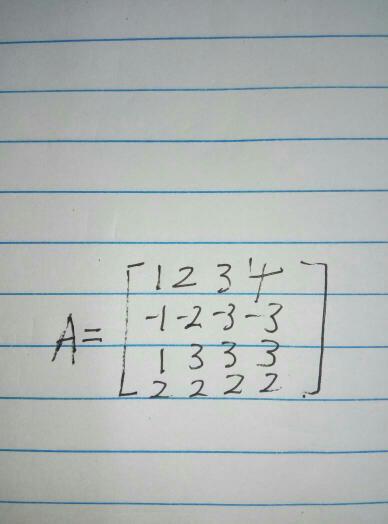 1 2 3 4
A= -1 -2 -3 -3
1 3 3 3
2 2 2 2